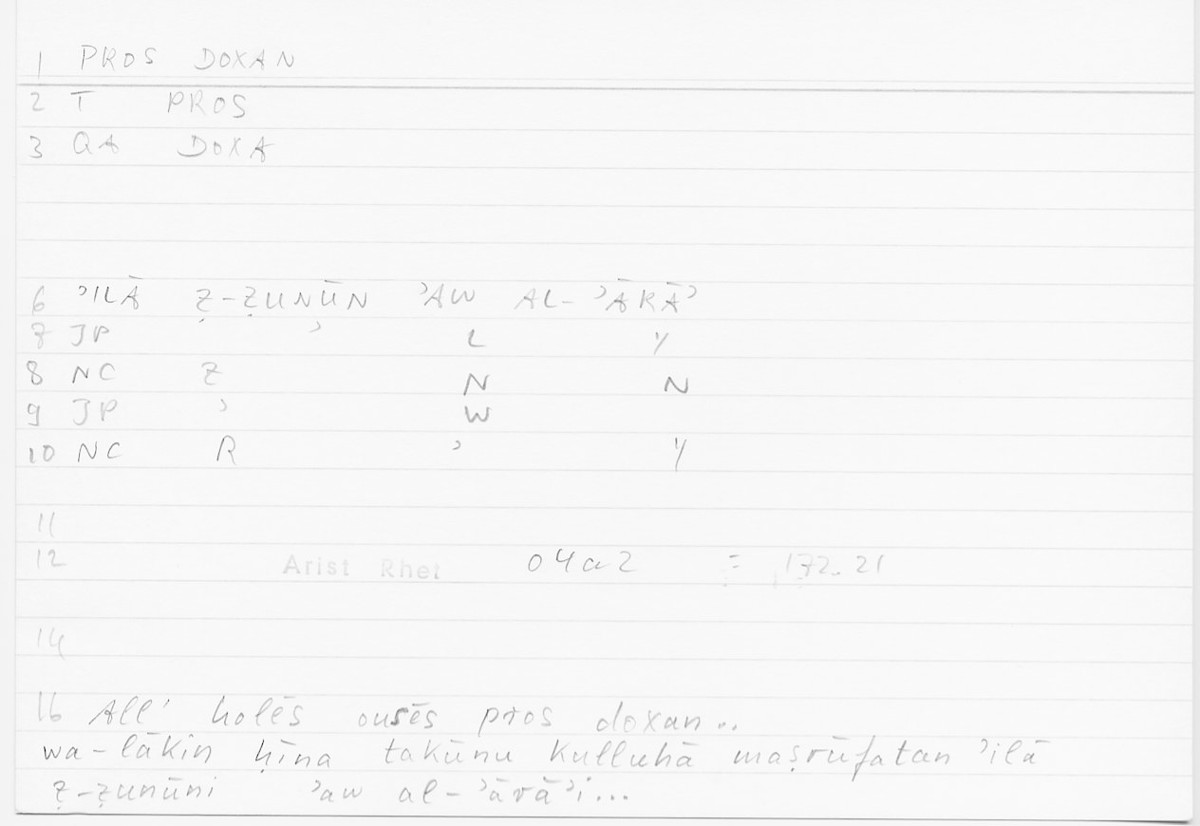 1 PROS DOXAN
2 T PROS
3 QA DOXA
6 ʾILĀ Ẓ-ẒUNŪN ʾAW AL-ʾĀRĀʾ
7 JP ʾ L Y
8 NC Z N N
9 JP ʾ W
10 NC R ʾ Y
11
12 Arist Rhet 04a2 = 172.21
14
16 All' holēs ousēs pros doxan..
wa-lākin ḥīna takūnu kulluhā maṣrūfatan ʾilā
ẓ-ẓunūni ʾaw al-ʾārāʾi...